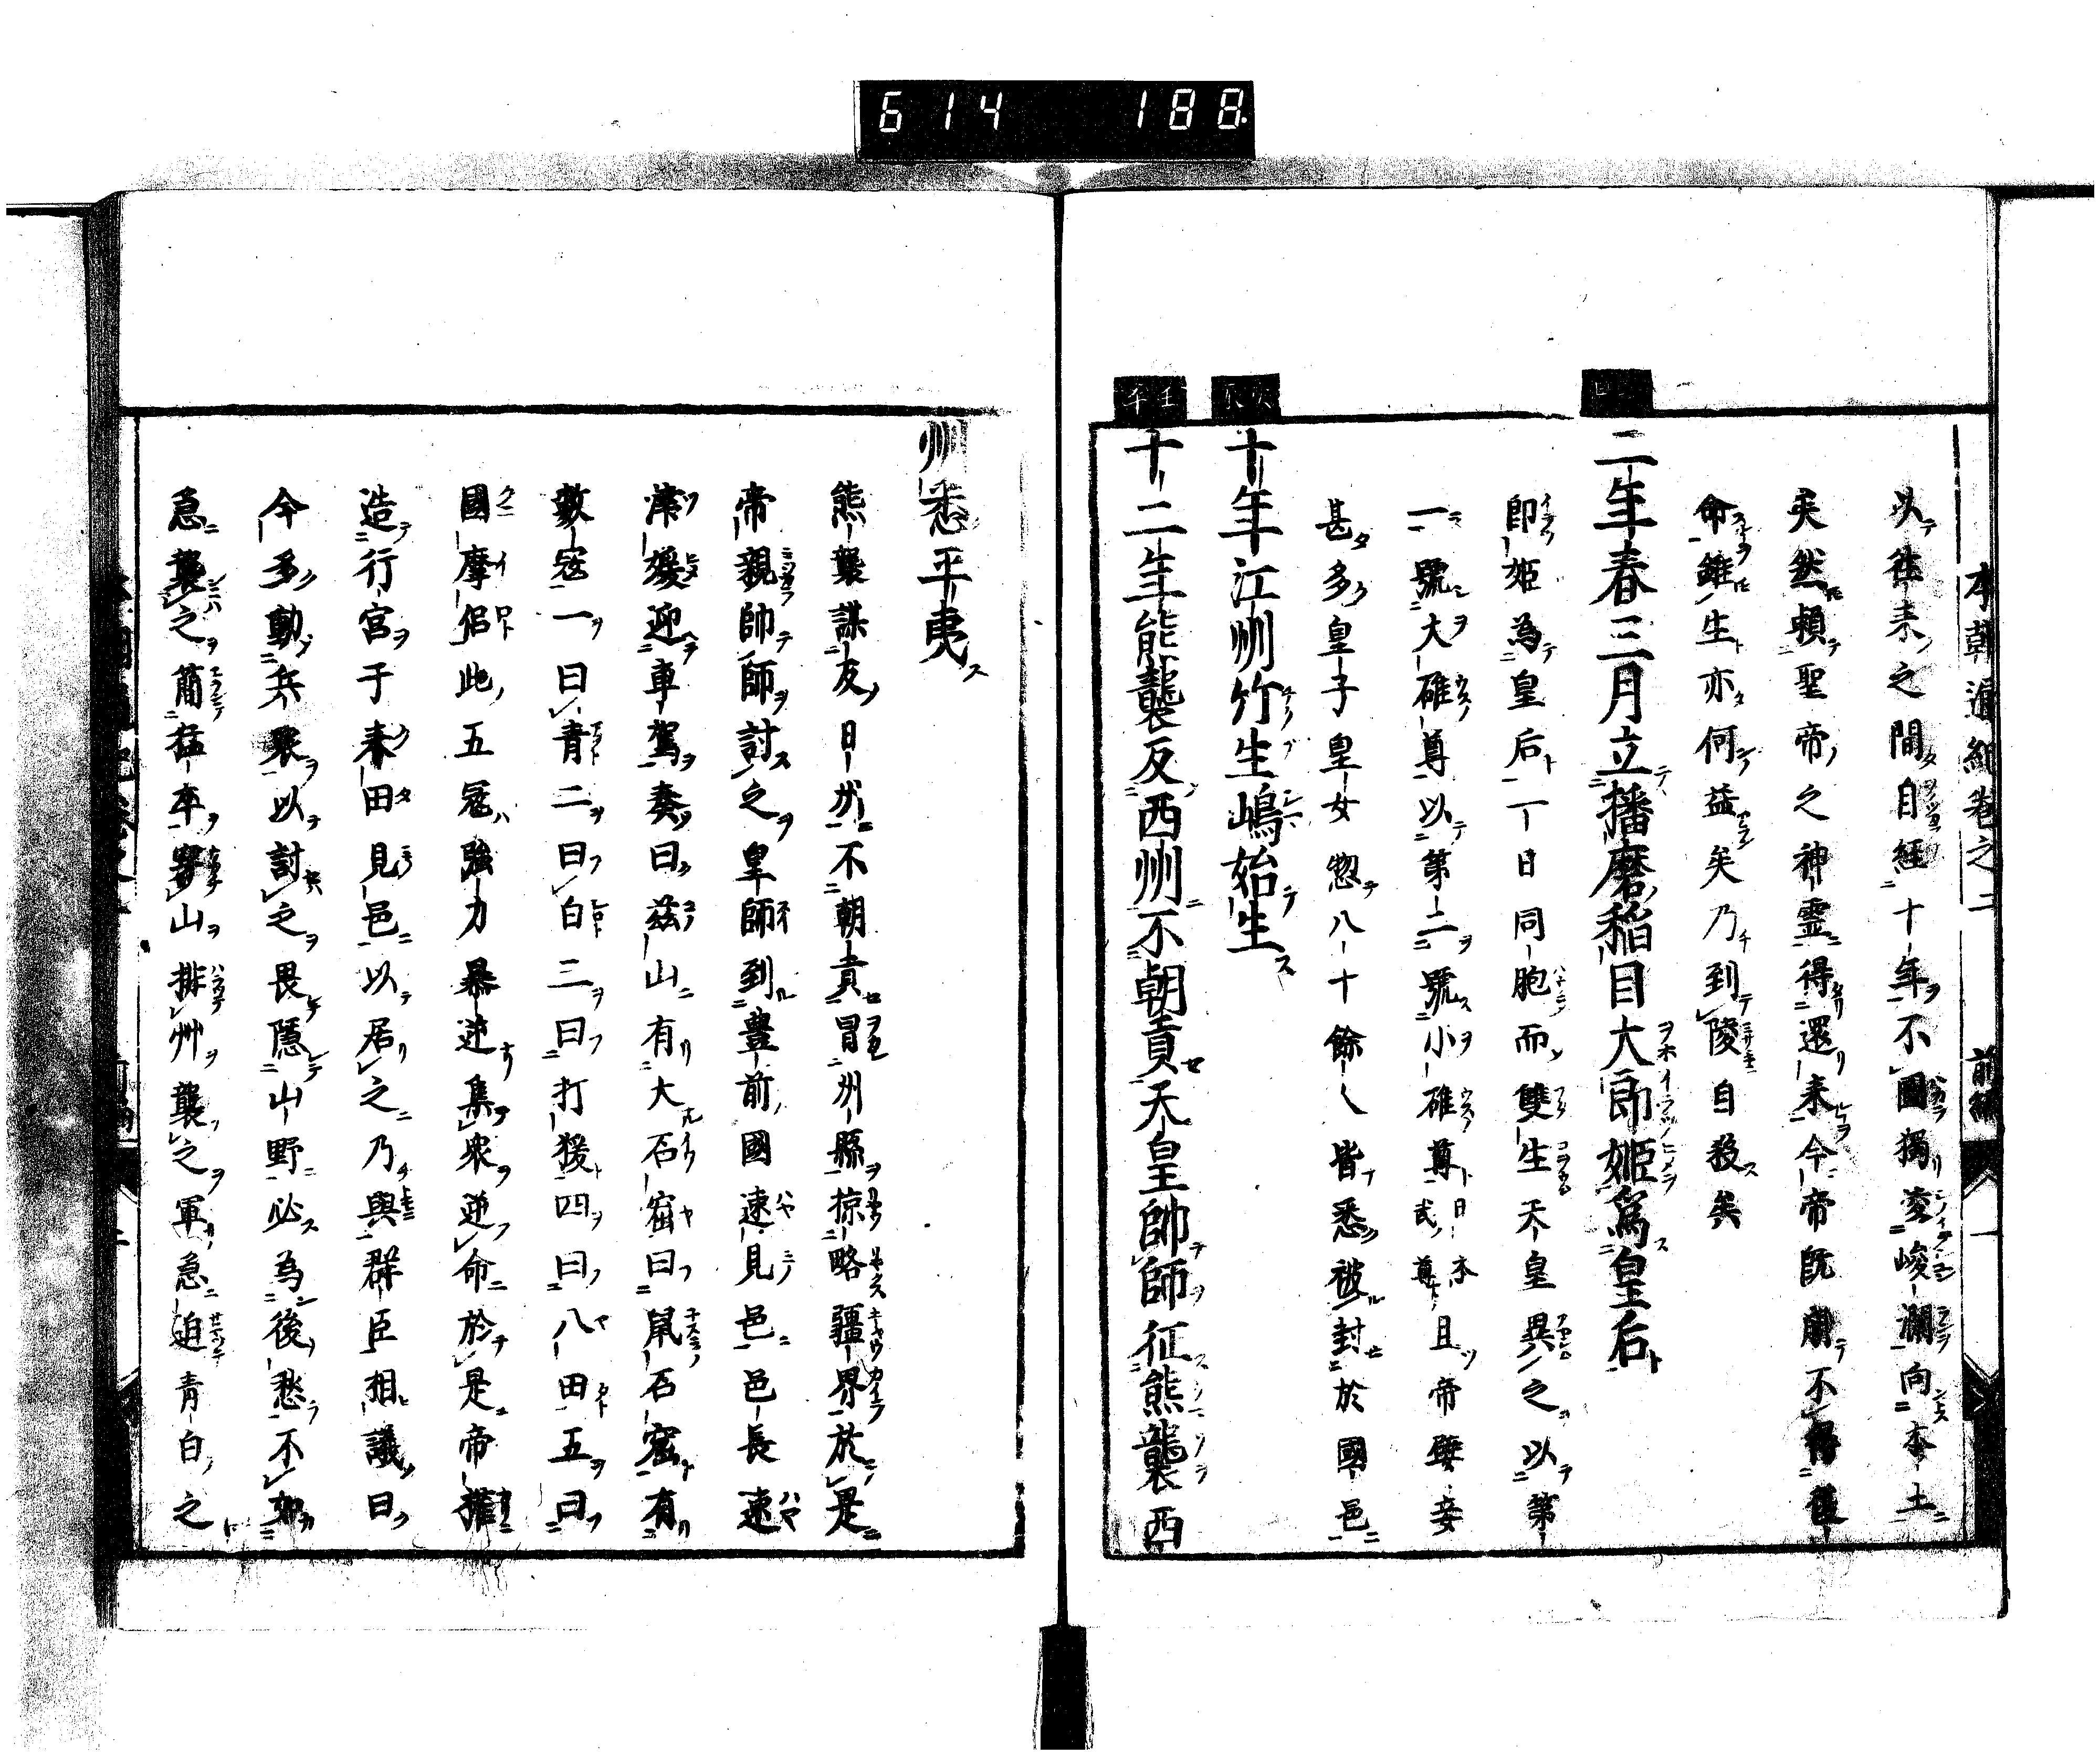 6 1 4 1 8 8.
本朝通紀巻之二 前編 一
以往来之間自経十年不圖獨凌峻瀾向本土
矣然頼聖帝之神霊得還来今帝既崩不得復
命雖生亦何益矣乃到陵自殺矣
二年春三月立播磨稲目大郎姫為皇后
即姫為皇后一日同胞而雙生天皇異之以第
一號大碓尊以第二號小碓尊日本武尊且帝嬖妾
甚多皇子皇女惣八十餘人皆悉被封於國邑
十年江州竹生嶋始生
壬午
十二年熊襲反西州不朝貢天皇帥師征熊襲西
州悉平夷
熊襲謀反日州不朝貢冒州縣掠略疆界於是
帝親帥師討之皇師到豊前國速見邑邑長速
津媛迎車駕奏曰茲山有大石窟曰鼠石窟有
數寇一曰青二曰白三曰打猨四曰八田五曰
國摩侶此五寇強力暴逆集衆逆命於是帝權
造行宮于来田見邑以居之乃與群臣相議曰
今多動兵衆以討之畏隠山野必為後愁不如
急襲之簡猛卒穿山排艸襲之軍急迫青白之